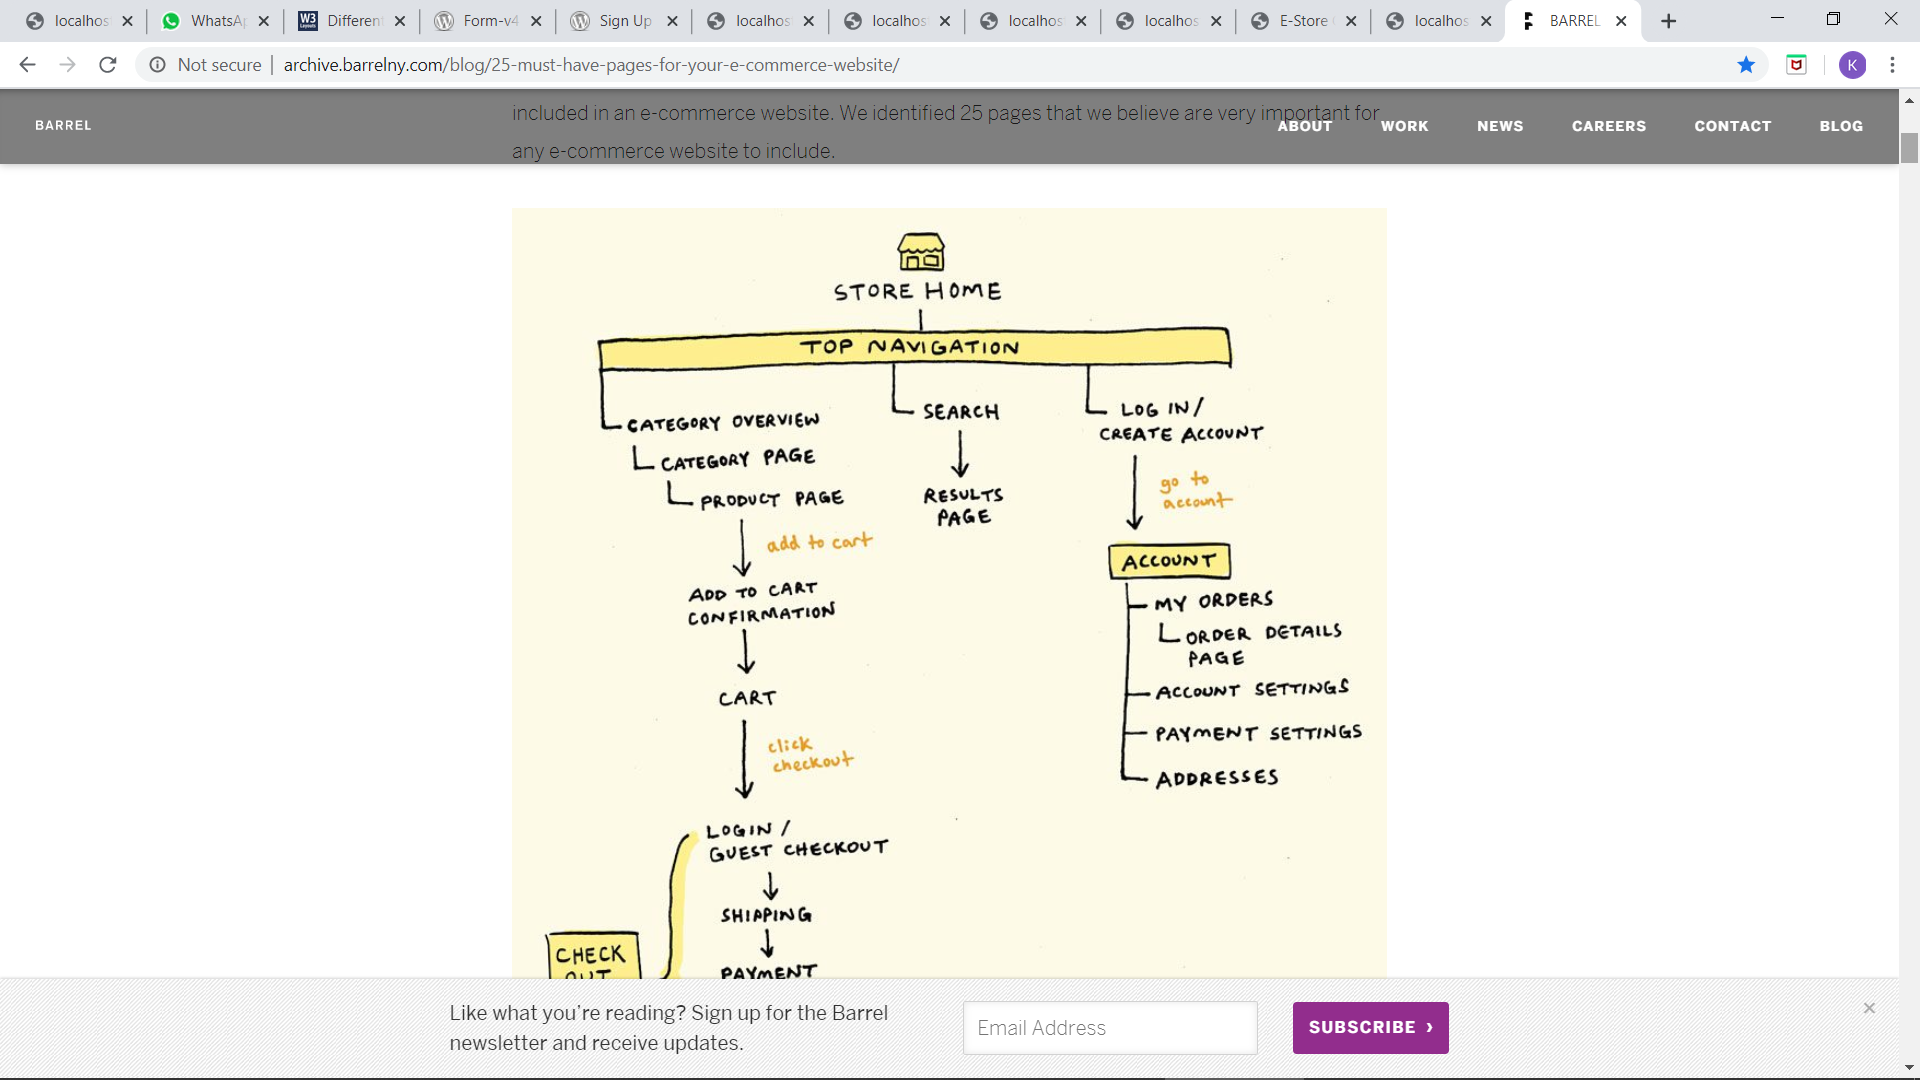 localhos
WhatsAp
W3
Different
Form-v4
Sign Up
localhos
localhos
localhos
localhos
E-Store
localhos
BARREL
Not secure
archive.barrelny.com/blog/25-must-have-pages-for-your-e-commerce-website/
K
included in an e-commerce website. We identified 25 pages that we believe are very important for
any e-commerce website to include.
BARREL
ABOUT
WORK
NEWS
CAREERS
CONTACT
BLOG
STORE HOME
TOP NAVIGATION
CATEGORY OVERVIEW
CATEGORY PAGE
PRODUCT PAGE
add to cart
ADD TO CART
CONFIRMATION
CART
click
checkout
LOGIN /
GUEST CHECKOUT
SHIPPING
PAYMENT
CHECK
OUT
SEARCH
RESULTS
PAGE
LOG IN /
CREATE ACCOUNT
go to
account
ACCOUNT
MY ORDERS
ORDER DETAILS
PAGE
ACCOUNT SETTINGS
PAYMENT SETTINGS
ADDRESSES
Like what you're reading? Sign up for the Barrel
newsletter and receive updates.
Email Address
SUBSCRIBE ›